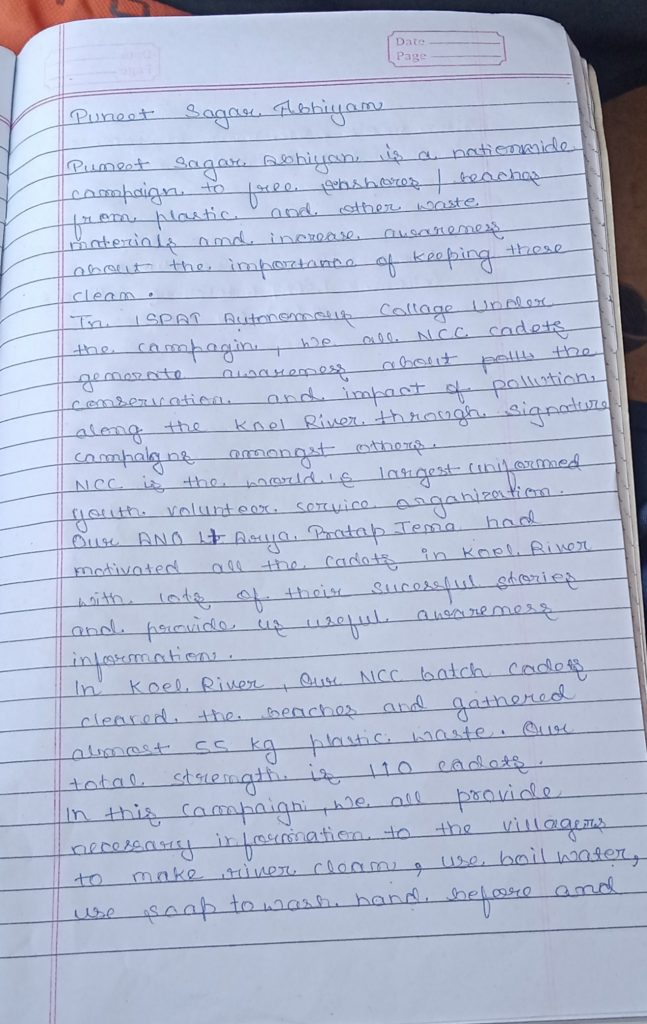 Date
Page
Puneet Sagar Abhiyam
Puneet Sagar Abhiyan is a nationwide
campaign to free seashores / beaches
from plastic and other waste
materials and increase awareness
about the importance of keeping these
clean.
In ISPAT Autonomous Collage Under
the campagin, we all NCC cadets
generate awareness about the
conservation and impact of pollution
along the Koel River through signature
campaigns amongst others.
NCC is the world's largest uniformed
youth volunteer service organization.
Our ANO Lt Arya Pratap Jema had
motivated all the cadets in Koel River
with lots of their sucessful stories
and provide us useful awareness
information.
In Koel River, Our NCC batch cadets
cleared the beaches and gathered
almost 55 kg plastic waste. Our
total strength is 110 cadets.
In this campaign, we all provide
necessary information to the villagers
to make river clean, use boil water,
use soap to wash hand before and